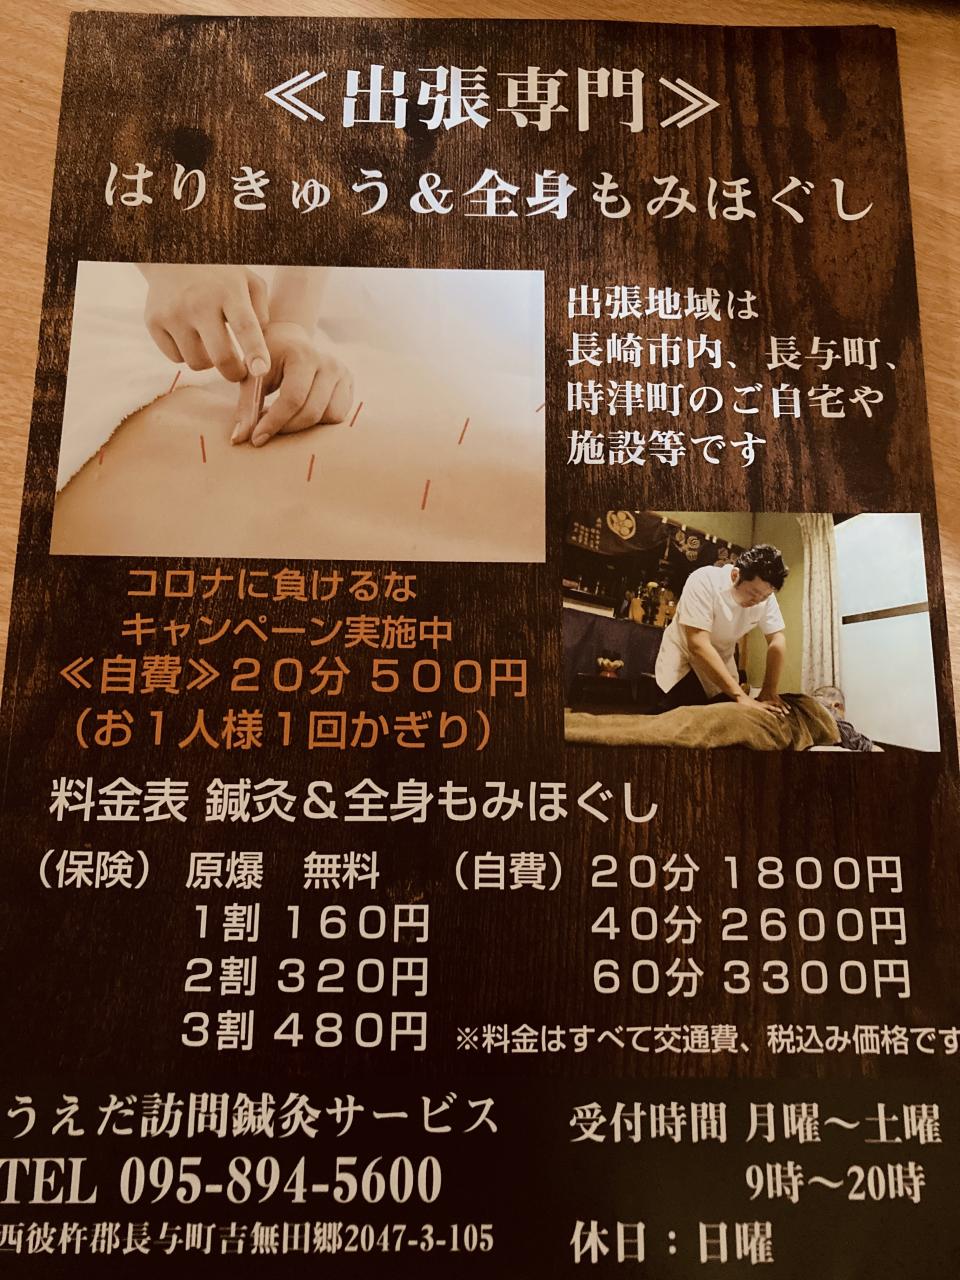 ≪出張専門≫
はりきゅう&全身もみほぐし
出張地域は
長崎市内、長与町、
時津町のご自宅や
施設等です
コロナに負けるな
キャンペーン実施中
≪自費≫20分 500円
(お1人様1回かぎり)
料金表 鍼灸&全身もみほぐし
(保険) 原爆 無料 (自費) 20分 1800円
1割 160円 40分 2600円
2割 320円 60分 3300円
3割 480円 ※料金はすべて交通費、税込み価格です
うえだ訪問鍼灸サービス
TEL 095-894-5600
西彼杵郡長与町吉無田郷2047-3-105
受付時間 月曜～土曜
9時～20時
休日:日曜